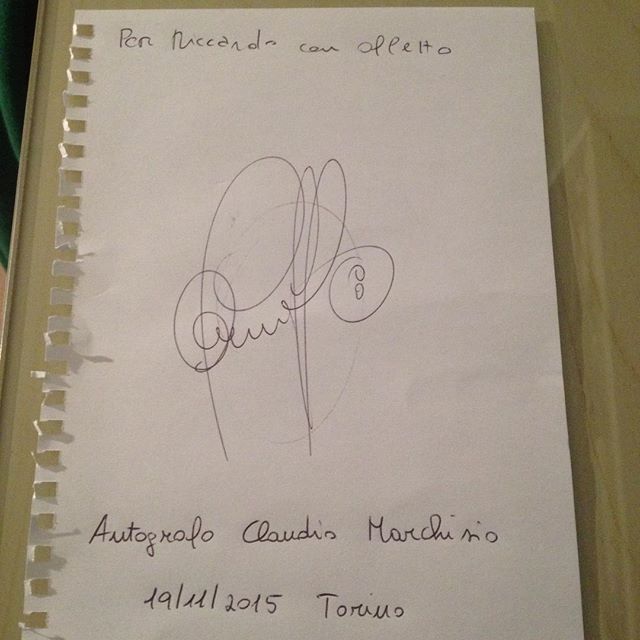 Per Riccardo con affetto
8
Autografo Claudio Marchisio
19/11/2015 Torino